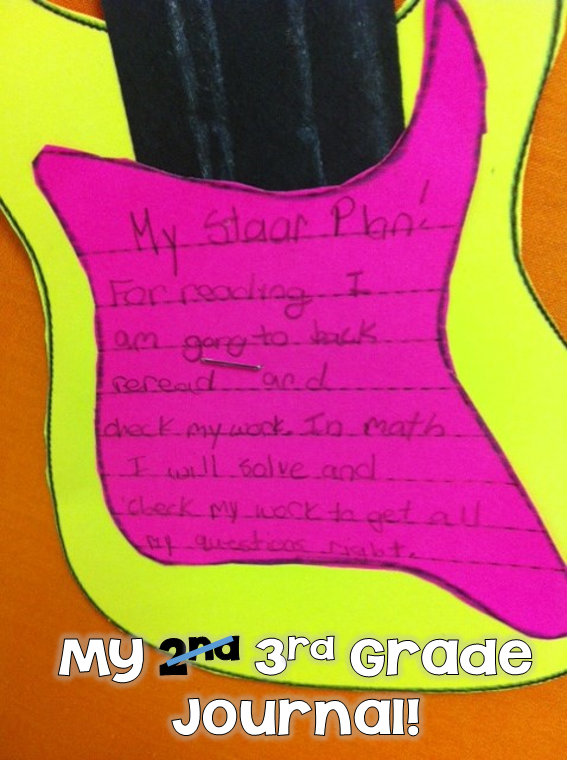 My Staar Plan!
For reading I
am gong to back
reread and
check my work. In math
I will solve and
check my work to get all
my questions right.
My 2nd 3rd Grade
Journal!